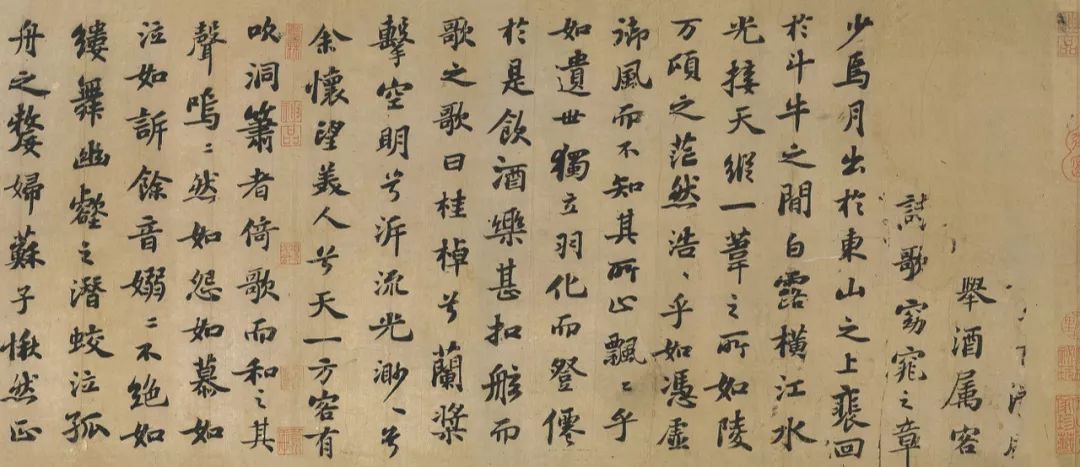 舉酒属客
詩歌窈窕之章
少焉月出於東山之上裴回
於斗牛之間白露橫江水
光接天縱一葦之所如陵
万頃之茫然浩〻乎如憑虛
御風而不知其所止飄〻乎
如遺世獨立羽化而登僊
於是飲酒樂甚扣舷而
歌之歌曰桂棹兮蘭槳
擊空明兮泝流光渺〻兮
余懷望美人兮天一方客有
吹洞簫者倚歌而和之其
聲嗚〻然如怨如慕如
泣如訴餘音嫋〻不絕如
縷舞幽壑之潛蛟泣孤
舟之嫠婦蘇子愀然正